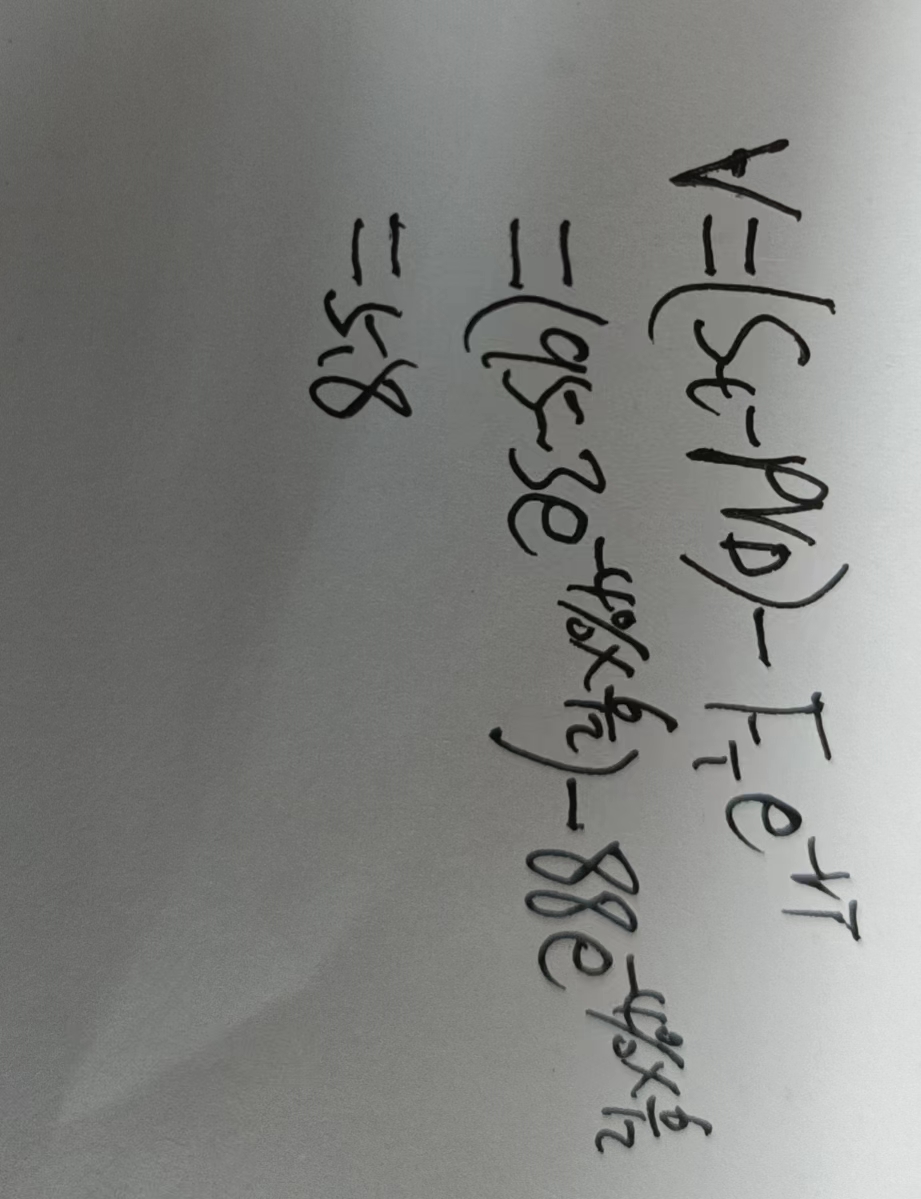 V=(St-PVD)-F_T e^{-rT}
=(95-3e^{-4%×6/12})-88e^{-4%×6/12}
=5.8